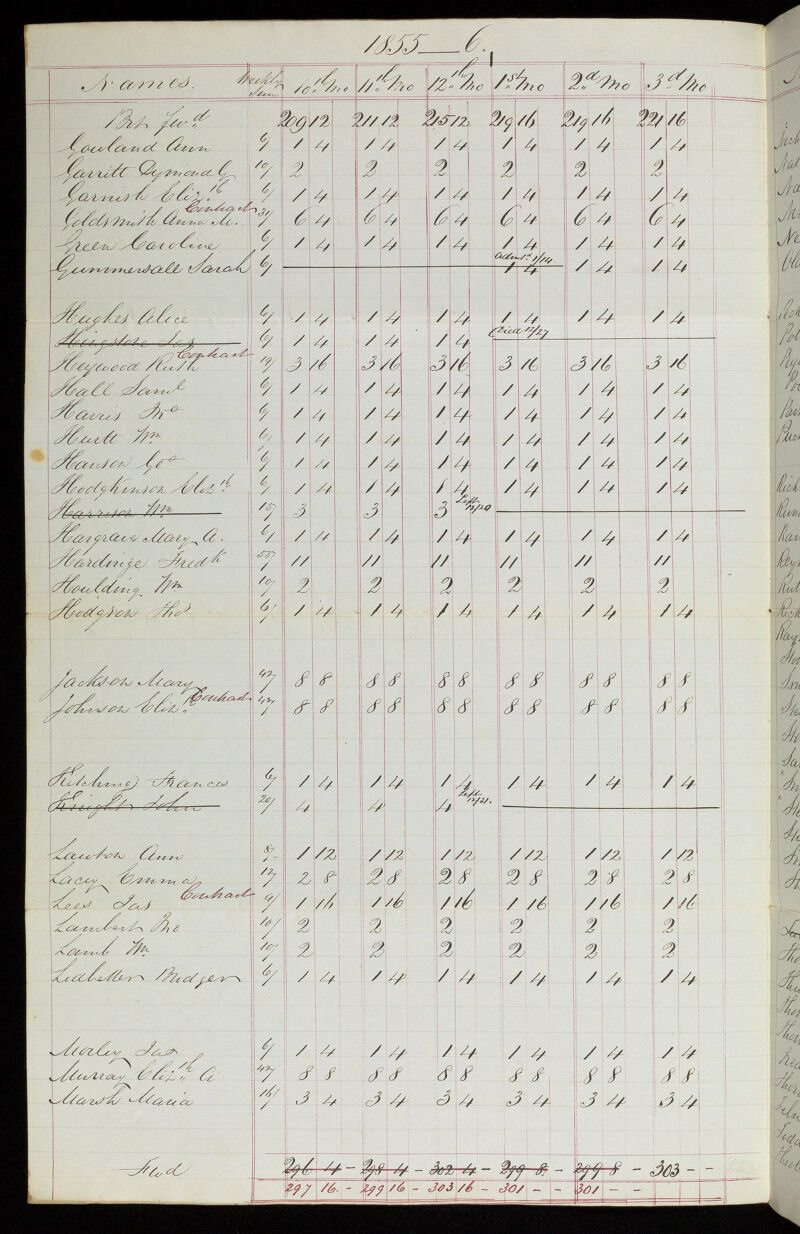 1855—6.
Names. Weekly Sum 10th Mo 11th Mo 12th Mo 1st Mo 2d Mo 3d Mo
Brt fwd 209 12 211 12 215 12 219 16 219 16 221 16
Gowland Ann 6/ 1 4 1 4 1 4 1 4 1 4 1 4
Garritt Dymond G 10/ 2 2 2 2 2 2
Garnish Elizth 6/ 1 4 1 4 1 4 1 4 1 4 1 4
Contract
Goldsmith Anna M. 31/ 6 4 6 4 6 4 6 4 6 4 6 4
Green Caroline 6/ 1 4 1 4 1 4 1 4 1 4 1 4
Gummersall Sarah 6/ Admd 1/14. 1 4 1 4 1 4
Hughes Alice 6/ 1 4 1 4 1 4 1 4 1 4 1 4
Kingston Jas 6/ 1 4 1 4 1 4 Died 12/27
Contract
Heywood Ruth 19/ 3 16 3 16 3 16 3 16 3 16 3 16
Hall Saml 6/ 1 4 1 4 1 4 1 4 1 4 1 4
Harris Jno 6/ 1 4 1 4 1 4 1 4 1 4 1 4
Hurtt Wm 6/ 1 4 1 4 1 4 1 4 1 4 1 4
Hanson Geo 6/ 1 4 1 4 1 4 1 4 1 4 1 4
Hodgkinson Elizth 6/ 1 4 1 4 1 4 1 4 1 4 1 4
Harrison Wm 15/ 3 3 3 Left 12/20
Hargrave Mary A. 6/ 1 4 1 4 1 4 1 4 1 4 1 4
Hardinge Fredk 55/ 11 11 11 11 11 11
Houlding Wm 10/ 2 2 2 2 2 2
Hodgson Thos 6/ 1 4 1 4 1 4 1 4 1 4 1 4
Jackson Mary 42/ 8 8 8 8 8 8 8 8 8 8 8 8
Johnson Eliz. Contract 42/ 8 8 8 8 8 8 8 8 8 8 8 8
Kitching Frances 6/ 1 4 1 4 1 4 1 4 1 4 1 4
Knight John 20/ 4 4 4 Left 12/21.
Lawton Ann 8/ 1 12 1 12 1 12 1 12 1 12 1 12
Lacey Emma 12/ 2 8 2 8 2 8 2 8 2 8 2 8
Lees Jas Contract 9/ 1 16 1 16 1 16 1 16 1 16 1 16
Lambert Jno 10/ 2 2 2 2 2 2
Lamb Wm 10/ 2 2 2 2 2 2
Ledbetter Bridget 6/ 1 4 1 4 1 4 1 4 1 4 1 4
Morley Jas 6/ 1 4 1 4 1 4 1 4 1 4 1 4
Murray Elizth A 42/ 8 8 8 8 8 8 8 8 8 8 8 8
Marsh Maria 16/ 3 4 3 4 3 4 3 4 3 4 3 4
Fwd 296 4 - 298 4 - 302 4 - 299 8 - 299 8 - 303 - -
297 16 - 299 16 - 303 16 - 301 - - 301 - -